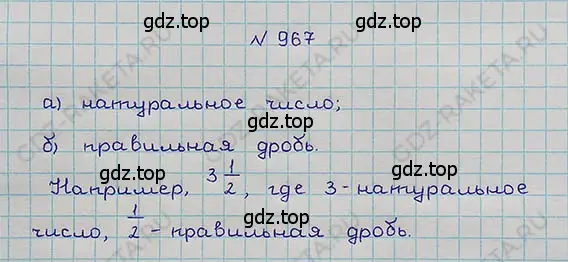 gdz.top
N 967
gdz.top
а) натуральное число;
gdz.top
б) правильная дробь.
Например, 3 1/2, где 3 - натуральное
gdz.top
число, 1/2 - правильная дробь.
gdz.top
GDZ-RAKETA.RU